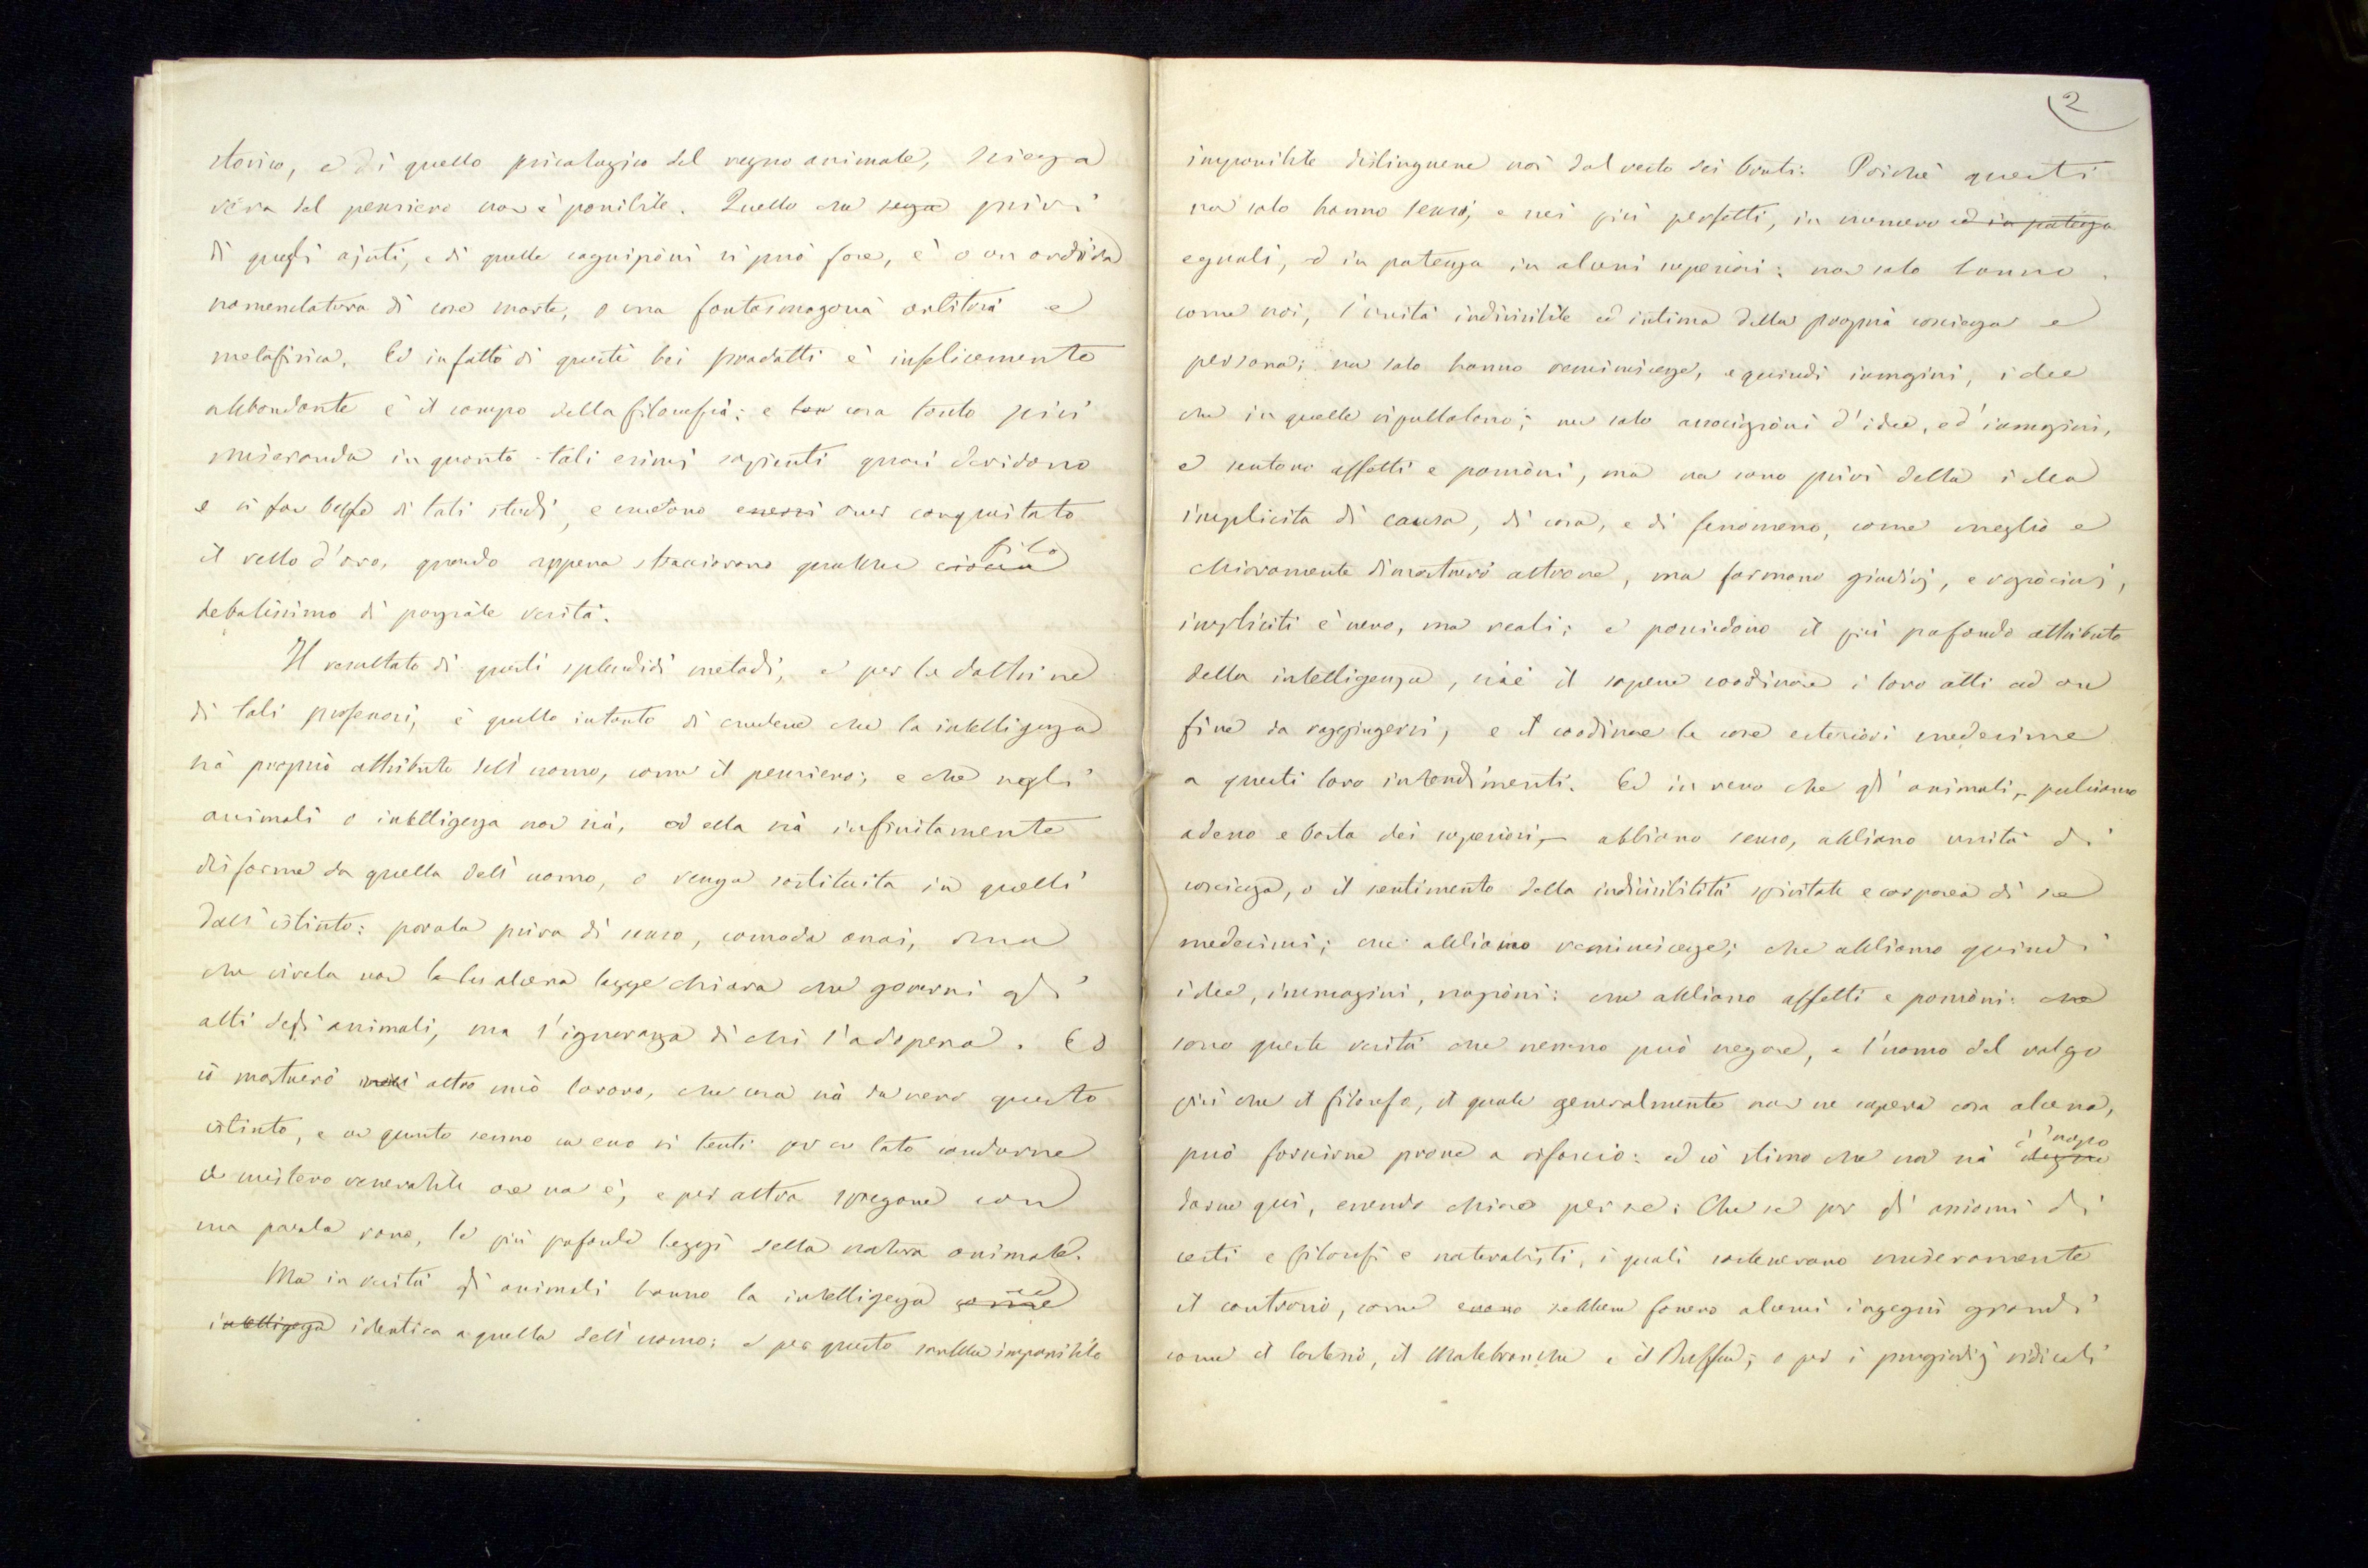 storico, e di quello psicologico del regno animale, scienza
vera del pensiero non è possibile. Quello che senza privi
di questi ajuti, e di quelle cognizioni si può fare, è o un ordida
nomenclatura di cose morte, o una fantasmagoria arbitraria e
metafisica. Ed infatti di questi bei prodotti è infelicemente
abbondante è il campo della filosofia; e cosa tanto più
miseranda in quanto tali esimi sapienti quasi deridono
e si fan beffe di tali studi, e credono essersi aver conquistato
il vello d'oro, quando appena stracciarono qualche filo
debolissimo di parziale verità.
Il resultato di questi splendidi metodi, e per le dottrine
di tali professori, è quello intanto di credere che la intelligenza
sia proprio attributo dell'uomo, come il pensiero; e che negli
animali o intelligenza non sia, od ella sia infinitamente
disforme da quella dell'uomo, o venga sostituita in quelli
dall'istinto: parola priva di senso, comoda assai, ma
che rivela non la alcuna legge chiara che governi gli
atti degli animali, ma l'ignoranza di chi l'adopera. Ed
io mostrerò altro mio lavoro, che cosa sia da vero questo
istinto, e con quanto senno con esso si tenti per un lato condurne
a mistero venerabile ove non è, e per altra spiegare con
una parola vana, le più profonde leggi della natura animale.
Ma in verità gli animali hanno la intelligenza come
intelligenza identica a quella dell'uomo; e per questo sarebbe impossibile
2
impossibile distinguere noi dal resto dei bruti. Poichè questi
non solo hanno sensi, e nei più perfetti, in numero ed in potenza
eguali, ed in potenza in alcuni superiori; non solo hanno
come noi, l'unità indivisibile ed intima della propria coscienza e
persona; non solo hanno reminiscenze, e quindi immagini, idee
che in quelle ripullulano; non solo associazioni d'idee, e d'immagini,
e sentono affetti e passioni, ma non sono privi della idea
implicita di causa, di cosa, e di fenomeno, come meglio e
chiaramente dimostrerò altrove, ma formano giudizj, e raziocini,
impliciti è vero, ma reali; e possiedono il più profondo attributo
della intelligenza, cioè il sapere coordinare i loro atti ad un
fine da raggiungersi, e il coordinare le cose esteriori medesime
a questi loro intendimenti. Ed in vero che gli animali, - parliamo
adesso e basta dei superiori, - abbiano senso, abbiano unità di
coscienza, o il sentimento della indivisibilità spiritale e corporea di se
medesimi; che abbiano reminiscenze; che abbiano quindi
idee, immagini, nozioni: che abbiano affetti e passioni: che
sono queste verità che nessuno può negare, e l'uomo del volgo
più che il filosofo, il quale generalmente non ne sapeva cosa alcuna,
può fornirne prove a josa: ed io stimo che non sia d'uopo
darne qui, essendo chiaro per se: Che se per gli assiomi di
certi e filosofi e naturalisti, i quali sostenevano miseramente
il contrario, come sebbene fossero alcuni ingegni grandi
come il Cartesio, il Malebranche e il Buffon; o per i pregiudizj ridicoli